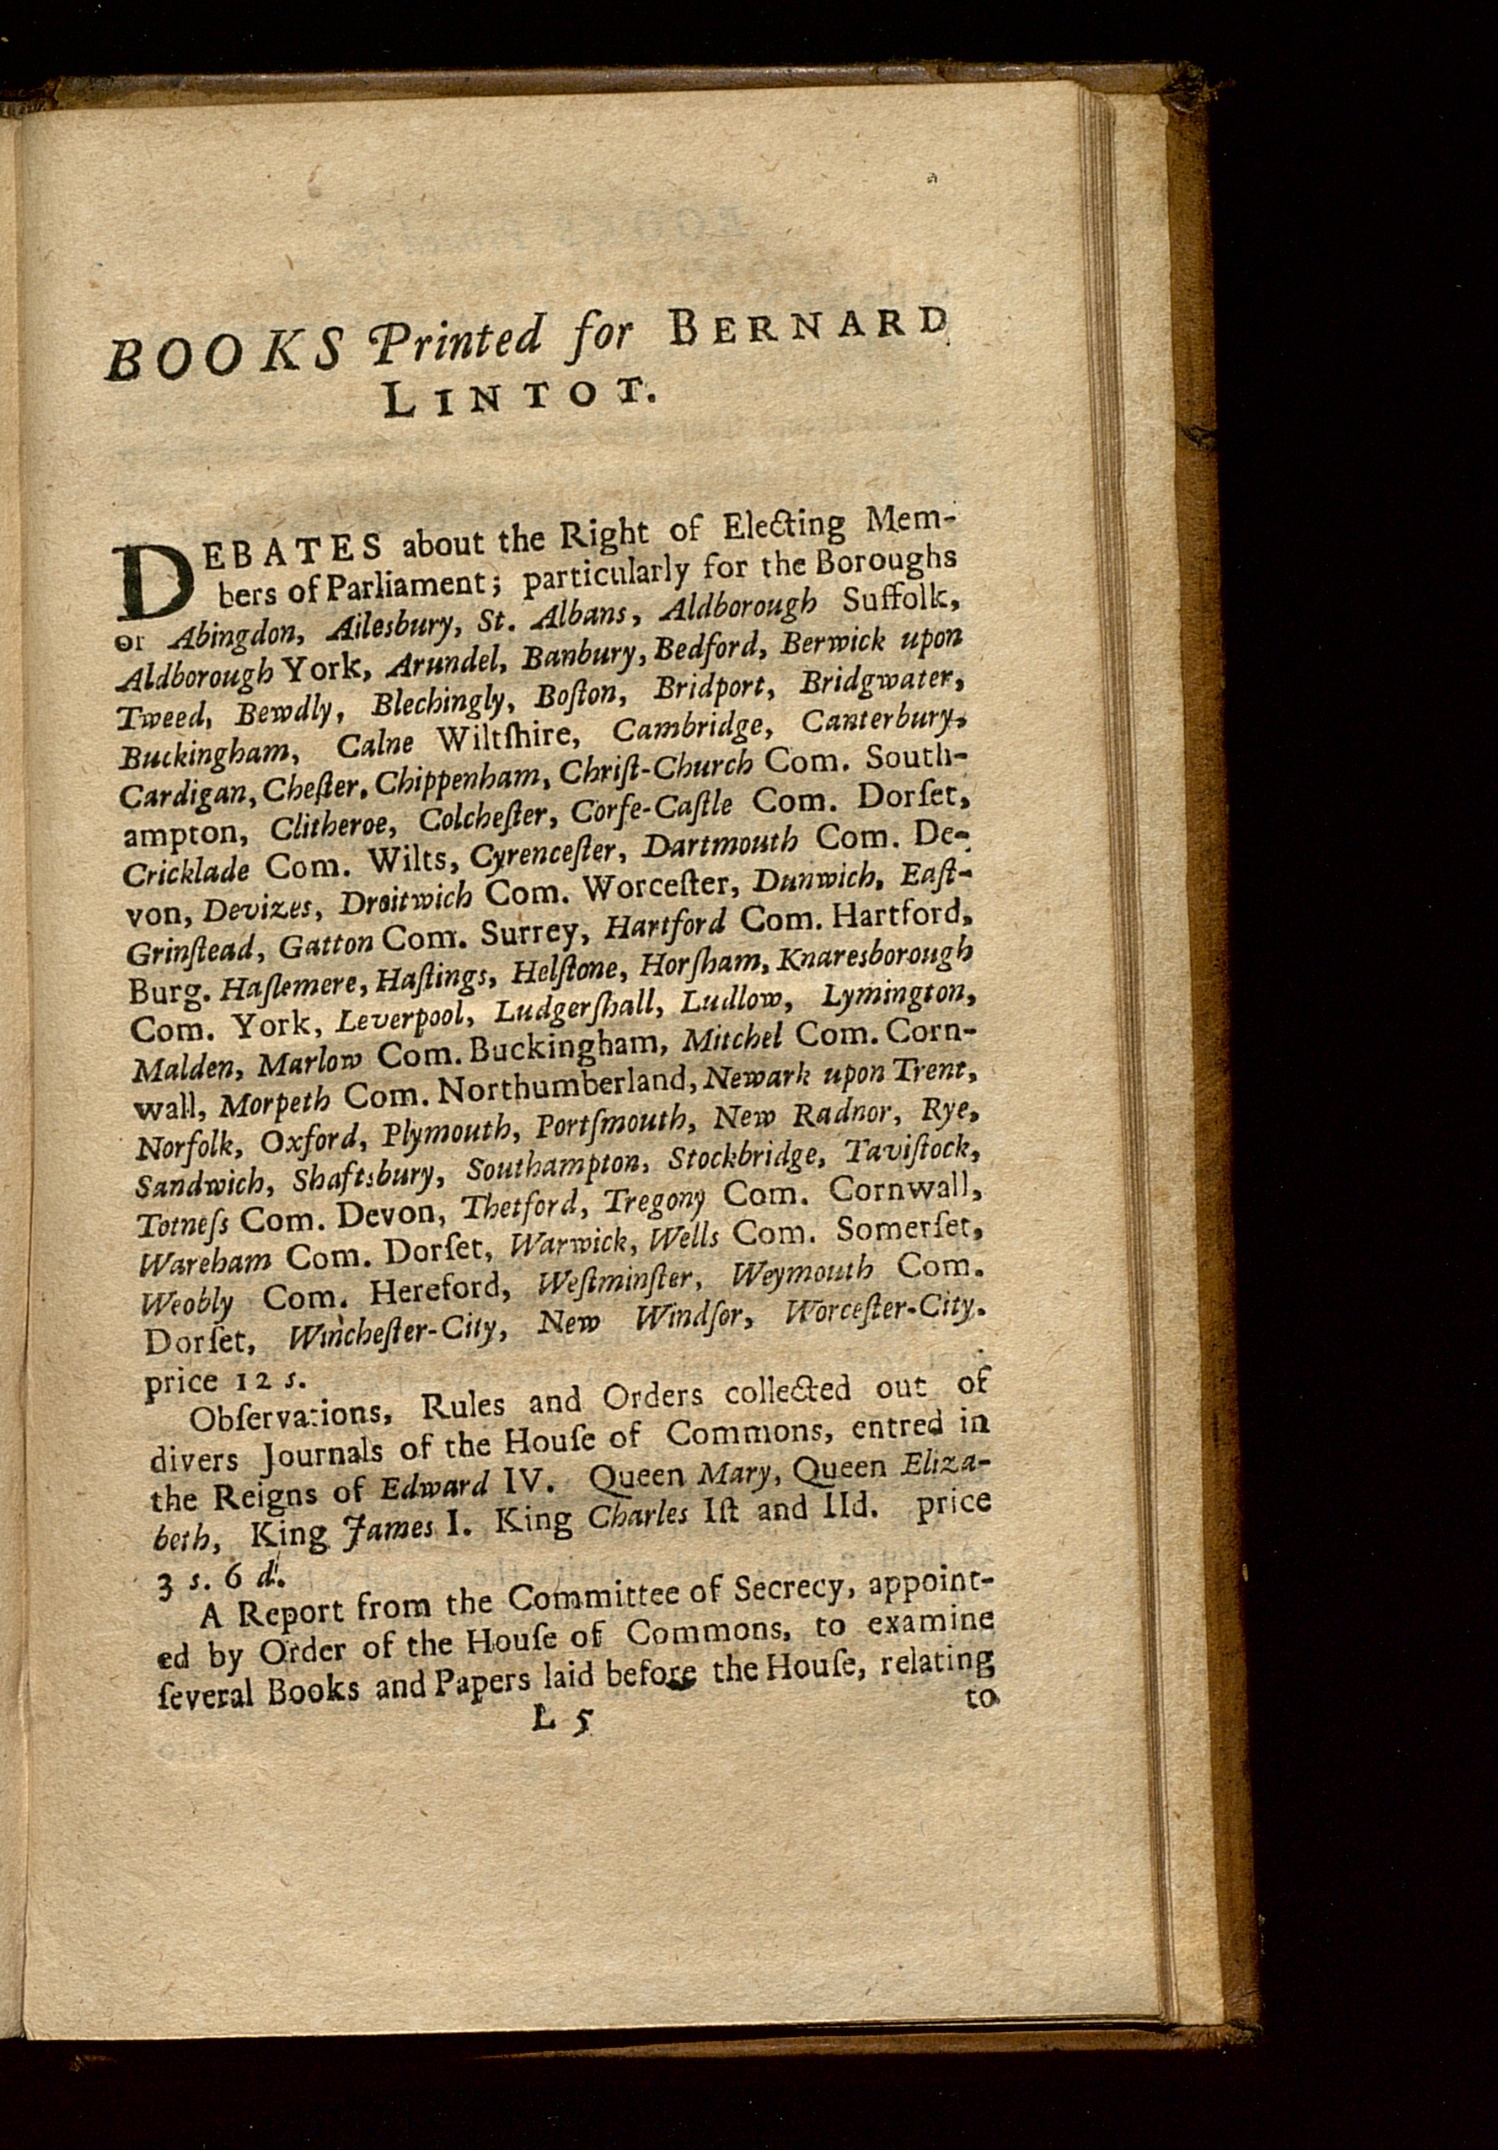 BOOKS Printed for BERNARD
LINTOT.
DEBATES about the Right of Electing Mem-
bers of Parliament; particularly for the Boroughs
or Abingdon, Ailesbury, St. Albans, Aldborough Suffolk,
Aldborough York, Arundel, Banbury, Bedford, Berwick upon
Tweed, Bewdly, Blechingly, Boſton, Bridport, Bridgwater,
Buckingham, Calne Wiltſhire, Cambridge, Canterbury,
Cardigan, Cheſter, Chippenham, Chriſt-Church Com. South-
ampton, Clitheroe, Colcheſter, Corfe-Caſtle Com. Dorſet,
Cricklade Com. Wilts, Cyrenceſter, Dartmouth Com. De-
von, Devizes, Droitwich Com. Worceſter, Dunwich, Eaſt-
Grinſtead, Gatton Com. Surrey, Hartford Com. Hartford,
Burg. Haſlemere, Haſtings, Helſtone, Horſham, Knaresborough
Com. York, Leverpool, Ludgerſhall, Ludlow, Lymington,
Malden, Marlow Com. Buckingham, Mitchel Com. Corn-
wall, Morpeth Com. Northumberland, Newark upon Trent,
Norfolk, Oxford, Plymouth, Portſmouth, New Radnor, Rye,
Sandwich, Shaftsbury, Southampton, Stockbridge, Taviſtock,
Totneſs Com. Devon, Thetford, Tregony Com. Cornwall,
Wareham Com. Dorſet, Warwick, Wells Com. Somerſet,
Weobly Com. Hereford, Weſtminſter, Weymouth Com.
Dorſet, Wincheſter-City, New Windſor, Worceſter-City.
price 12 s.
Obſervations, Rules and Orders collected out of
divers Journals of the Houſe of Commons, entred in
the Reigns of Edward IV. Queen Mary, Queen Eliza-
beth, King James I. King Charles Iſt and IId. price
3 s. 6 d.
A Report from the Committee of Secrecy, appoint-
ed by Order of the Houſe of Commons, to examine
ſeveral Books and Papers laid before the Houſe, relating
L 5 to